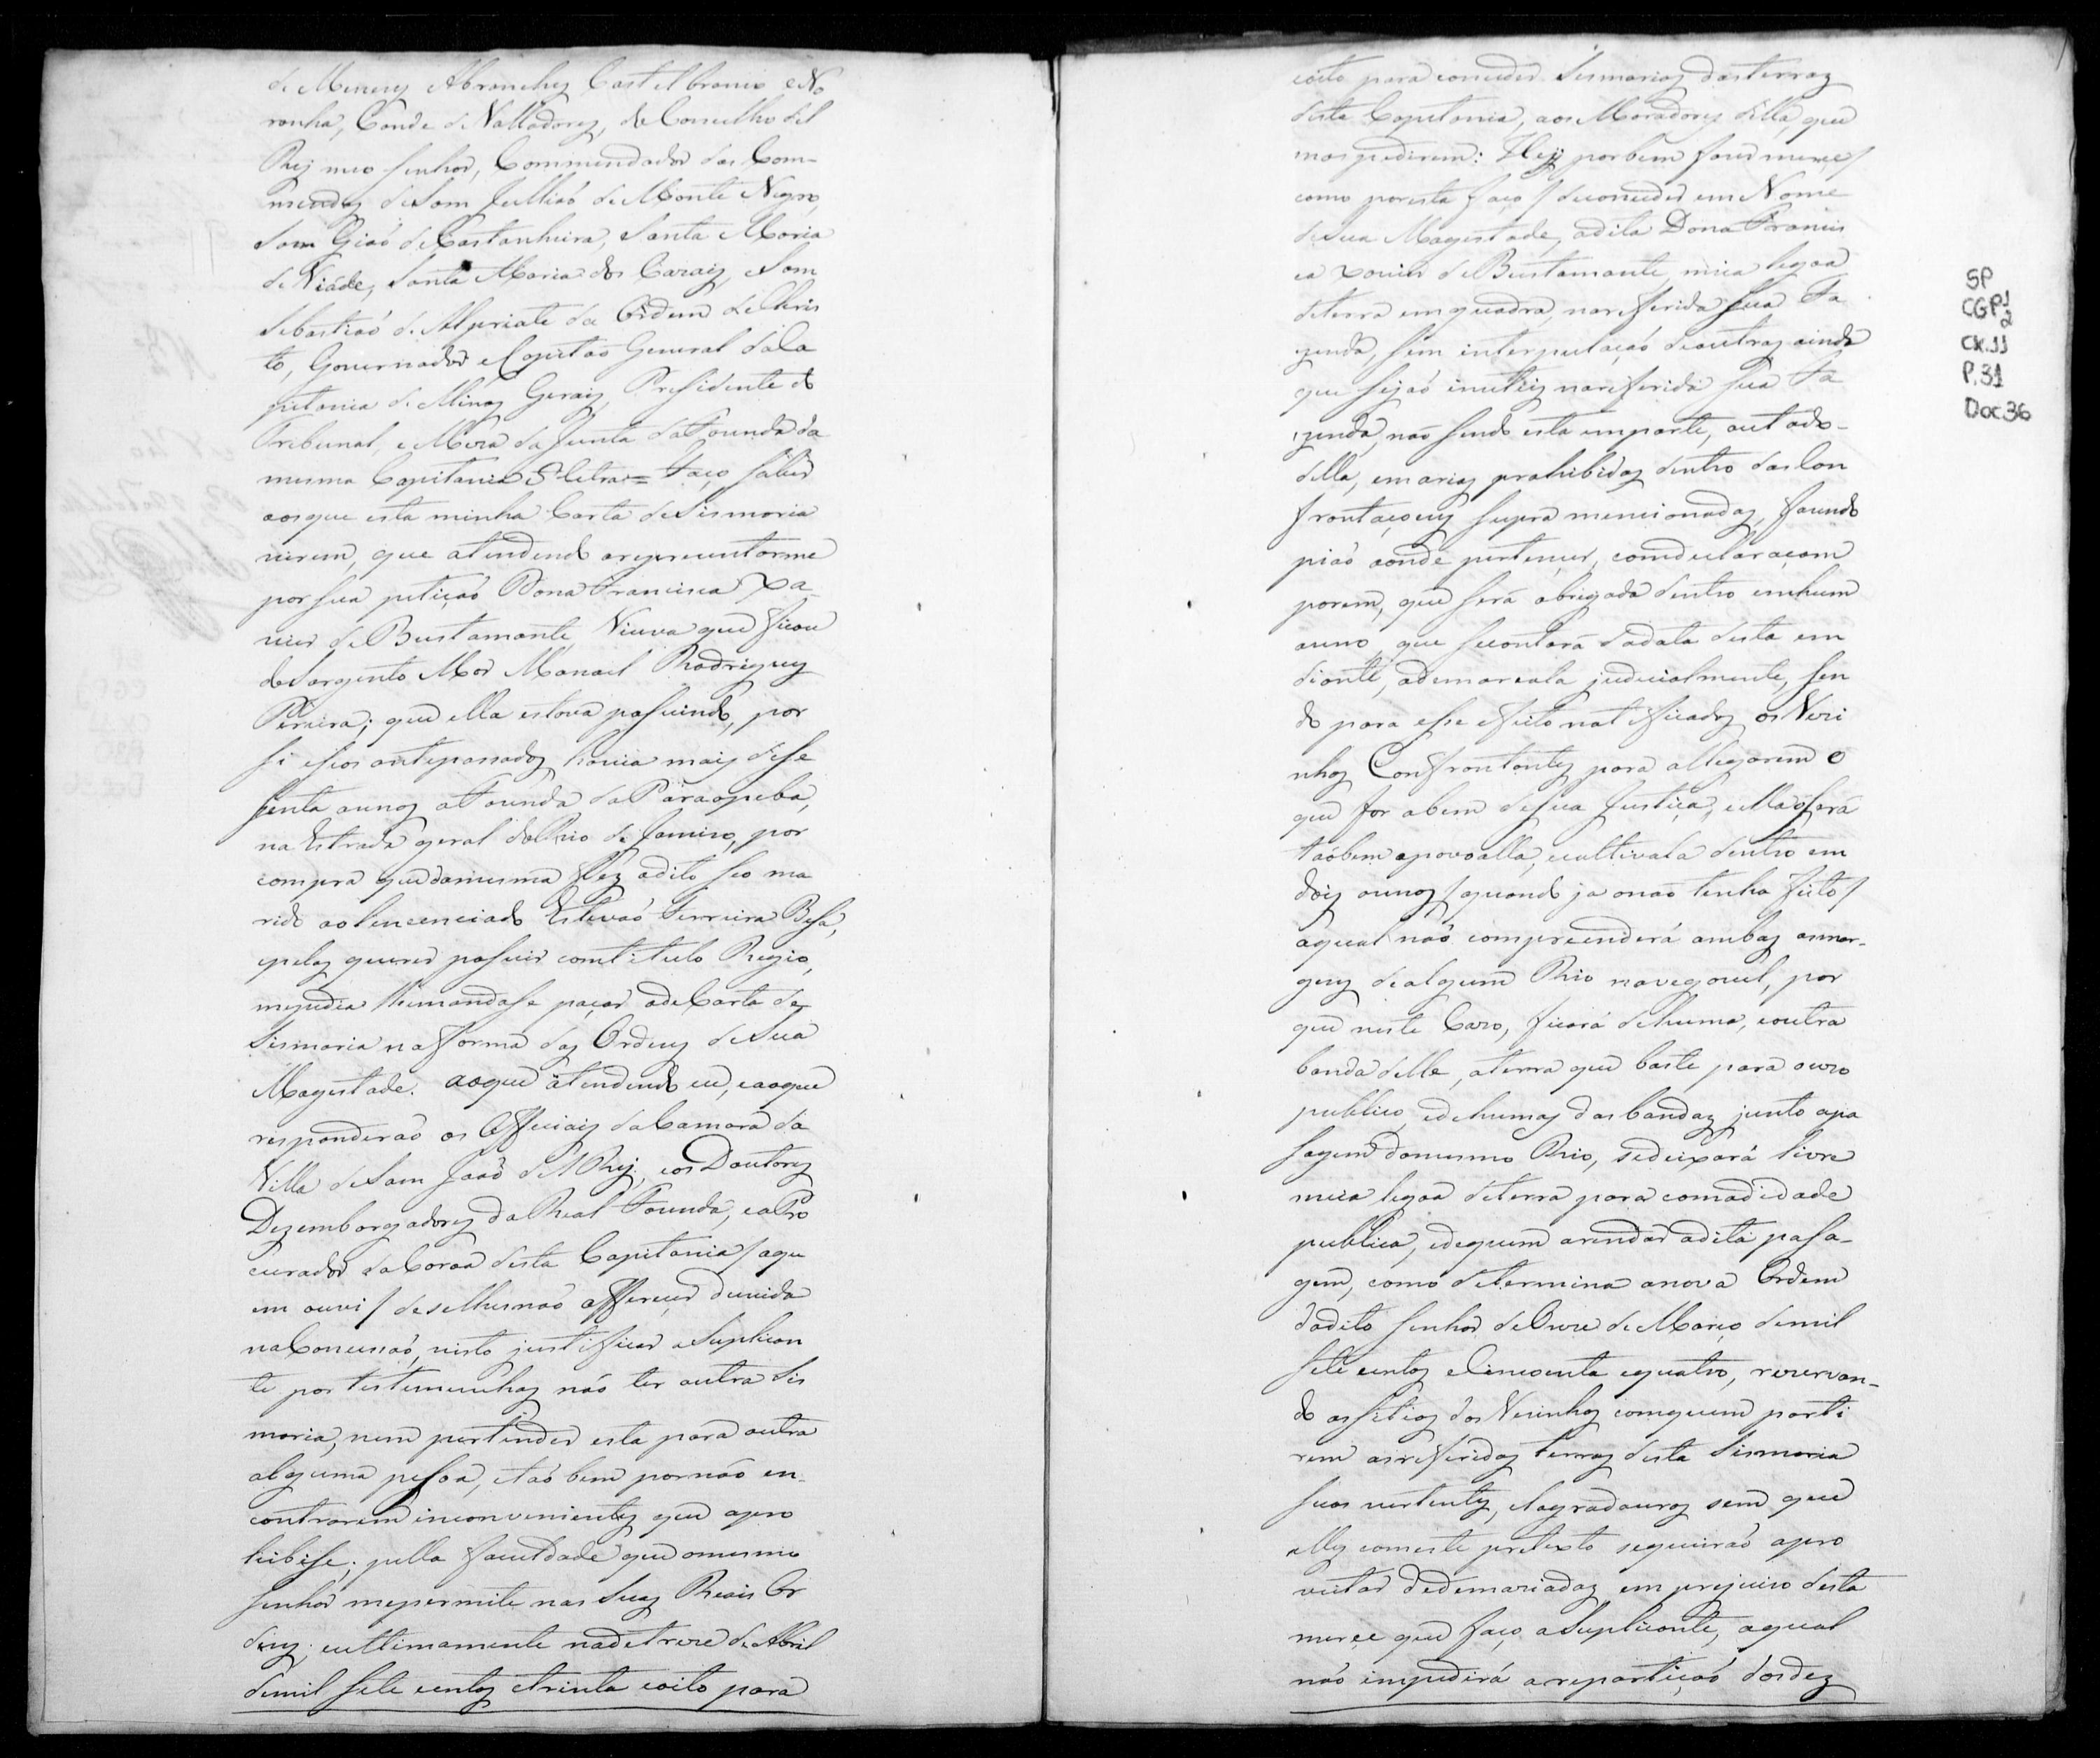 de Menezes Abranches Castel branco e No
ronha, Conde de Valladores, do Conselho del
Rey meo Senhor, Commendador das Com-
mendas de Sam Julliaõ de Monte Negro,
Sam Giaõ de Castanheira, Santa Maria
de Viáde, Santa Maria dos Caraiz, e Sam
Sebastiaõ de Alpriate da Ordem de Chris
to, Governador e Capitaõ General da Ca
pitania de Minas Geraes, Presidente do
Tribunal, e Meza da Junta da Fazenda da
mesma Capitania Etcetra = Faço saber
aos que esta minha Carta de Sismaria
virem, que atendendo a reprezentarme
por sua petiçaõ Dona Francisca Xa-
vier de Bustamante Viuva que ficou
do Sargento Mor Manoel Rodrigues
Pereira; que ella estava possuindo, por
si e seos antepassados havia mais de se
senta annos a Fazenda da Paraopeba,
na Estrada geral do Rio de Janeiro, por
compra que da mesma fez a dito seo ma
rido ao Lencenciado Estevaõ Ferreira Besa,
e pelas querer possuir com titulo Regio,
me pedia lhe mandase paçar a de Carta de
Sismaria na forma das Ordens de Sua
Magestade. ao que atendendo eu, e ao que
responderaõ os Officiaes da Camara da
Villa de Sam Joaõ del Rey, e os Doutores
Dezembargadores da Real Fazenda, e a Pro
curador da Coroa desta Capitania / a qu
em ouvi / de se lhes naõ offerecer duvida
na Concessaõ, visto justificar a Suplican
te por testemunhas não ter outra Sis
maria, nem pertender esta para outra
alguma pessoa, e taõ bem por não en-
contrarem inconveniente que a pro
hibise; pella faculdade que o mesmo
Senhor me permite nas Suas Reais Or
dens, e ultimamente na de treze de Abril
de mil sete centos e trinta e oito para
coito para conceder Sismarias das terras
desta Capitania, aos Moradores della, que
mas pedirem: Hey por bem fazer merce /
como por esta faço / de conceder em Nome
de Sua Magestade, a dita Dona Francis
ca Xavier de Bustamante, meia legoa
de terra em quadra, na referida sua Fa
zenda, sem interpulaçaõ de outras ainda
que sejaõ inuteiz na referida sua Fa
zenda, naõ sendo esta em parte, ou todo-
della, em arias prohibidas dentro das Con
frontaçoens supra mencionadas, fazendo
piaõ aonde pertencer, com declaraçam
porem, que será obrigada dentro em hum
anno, que se contará da data desta em
diante, a demarcala judicialmente, sen
do para esse efeito notificados os Vezi
nhos Confrontantes para allegarem o
que for a bem de sua Justiça, e ella o será
taõbem a povoalla, e cultivala dentro em
dois annos / quando ja o naõ tenha feito /
a qual naõ compreenderá ambas as mar-
gens de algum Rio navegavel, por
que neste Cazo, ficará de huma, e outra
banda delle, a terra que baste para o uzo
publico, e de humas das bandas junto a pa
sagem do mesmo Rio, se deixará livre
meia legoa de terra para comadidade
publica, e de quem arendar a dita pasa-
gem, como determina a nova Ordem
do dito Senhor de Onze de Março de mil
sete centos e Cincoenta e quatro, rezervan-
do os sitios dos Vezinhos com quem parti
rem as referidas terras desta Sismaria
suas vertentes, e logradouros sem que
elles com este pretexto se queiraõ apro
veitar de demaziadas em prejuizo desta
merce que faço a Suplicante, a qual
não impedirá a repartiçaõ dos dez
SP
CGP1
2
CX.11
P.31
Doc36